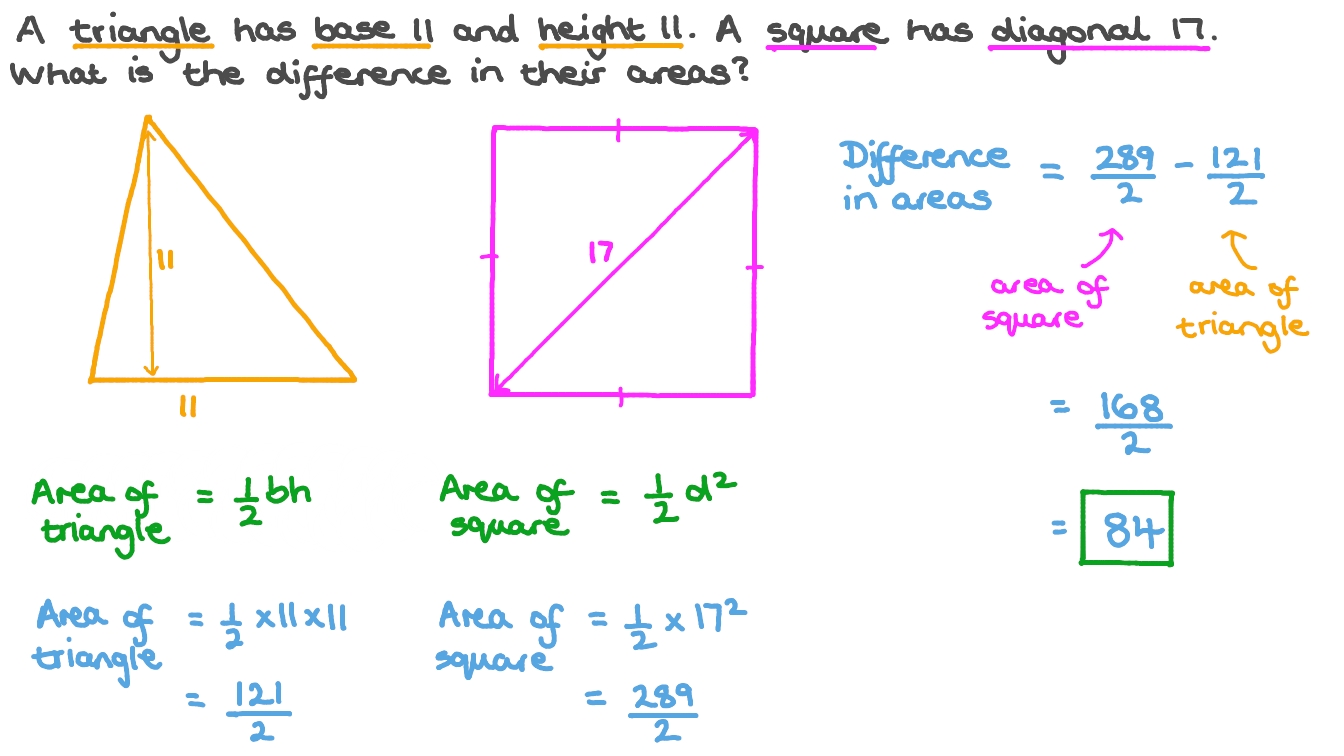 A triangle has base 11 and height 11. A square has diagonal 17.
What is the difference in their areas?
11
11
Area of triangle = 1/2 bh
Area of triangle = 1/2 × 11 × 11
= 121/2
17
Area of square = 1/2 d²
Area of square = 1/2 × 17²
= 289/2
Difference in areas = 289/2 - 121/2
area of square
area of triangle
= 168/2
= 84